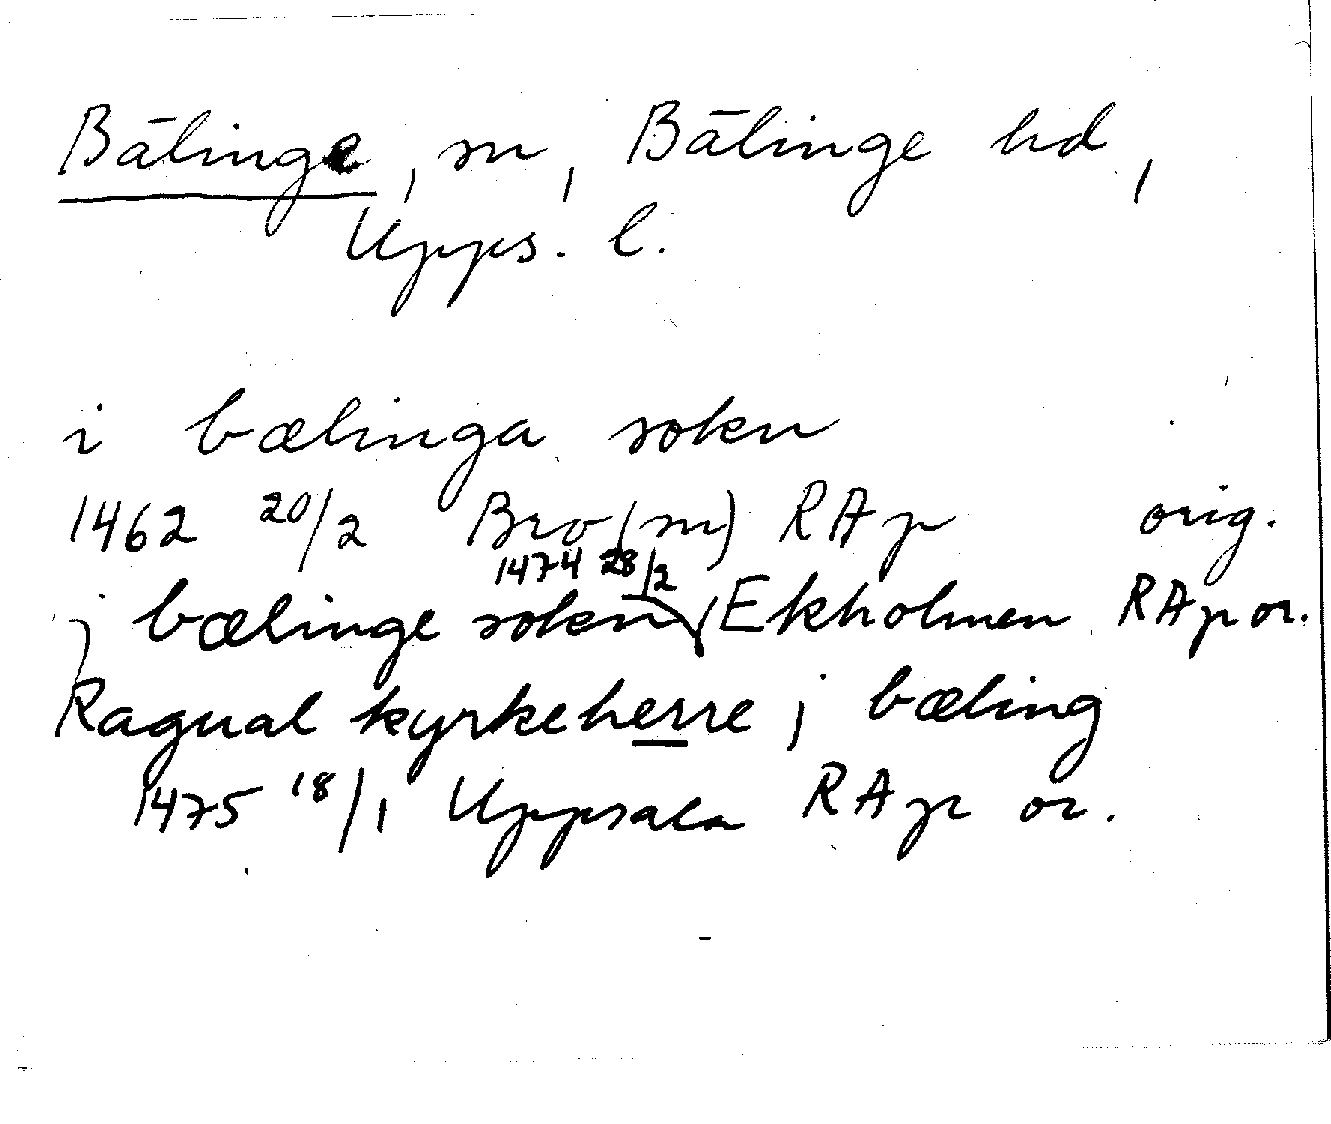 Bälinge, sn, Bälinge hd,
Upps. l.
i bælinga sokn
1462 20/2 Bro (sn) RAp orig.
1474 28/2
j bælinge sokn Ekholmen RAp or.
Ragual kyrkeherre j bæling
1475 18/1 Uppsala RAp or.